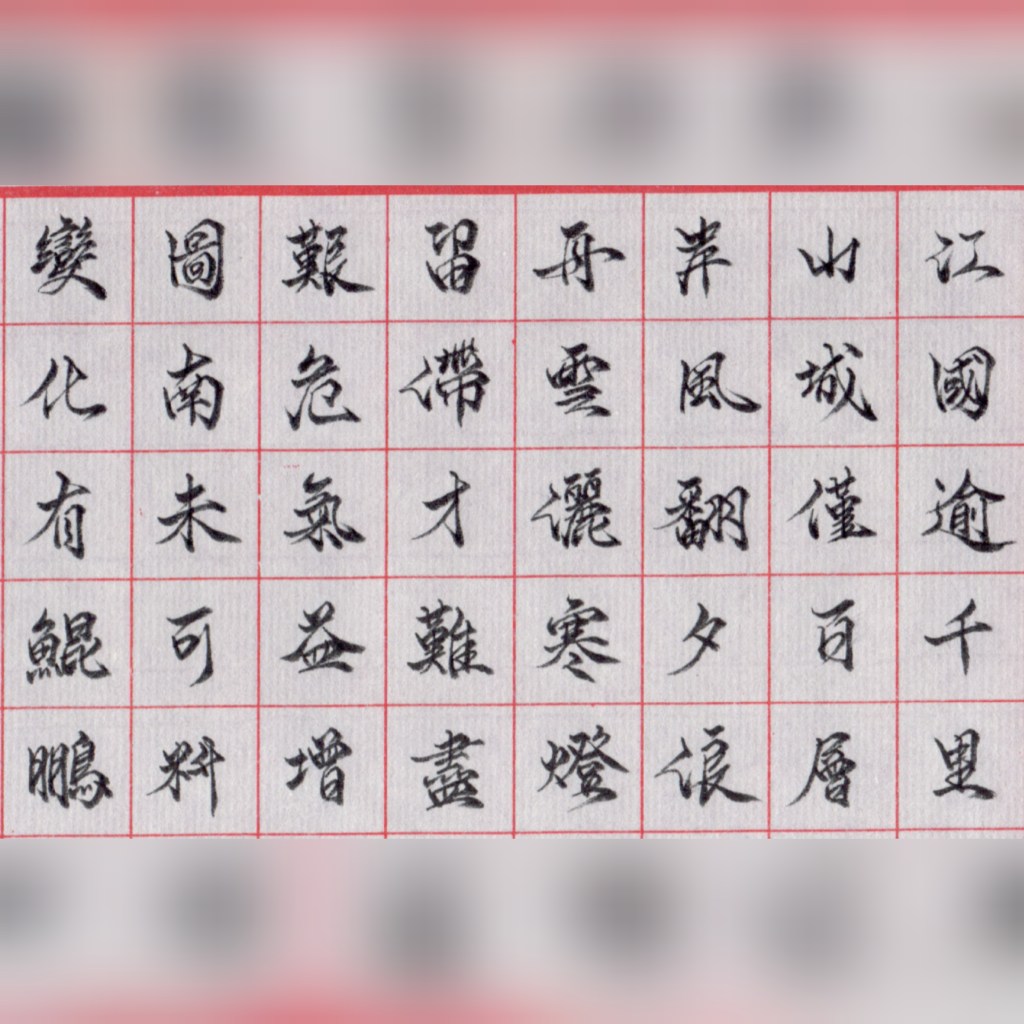 江國逾千里
山城僅百層
岸風翻夕浪
舟雪灑寒燈
留滯才難盡
艱危氣益增
圖南未可料
變化有鯤鵬